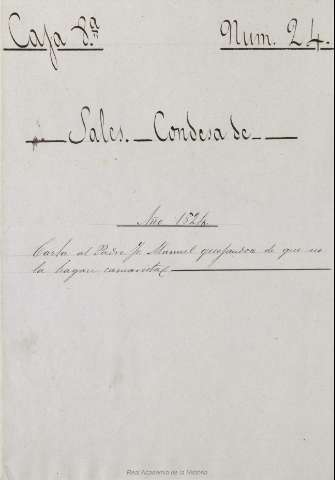 Caja 8.ª
Num. 24.
Sales. Condesa de
Año 1824.
Carta al Padre Fr. Manuel quejandose de que no
la hagan camarista
Real Academia de la Historia